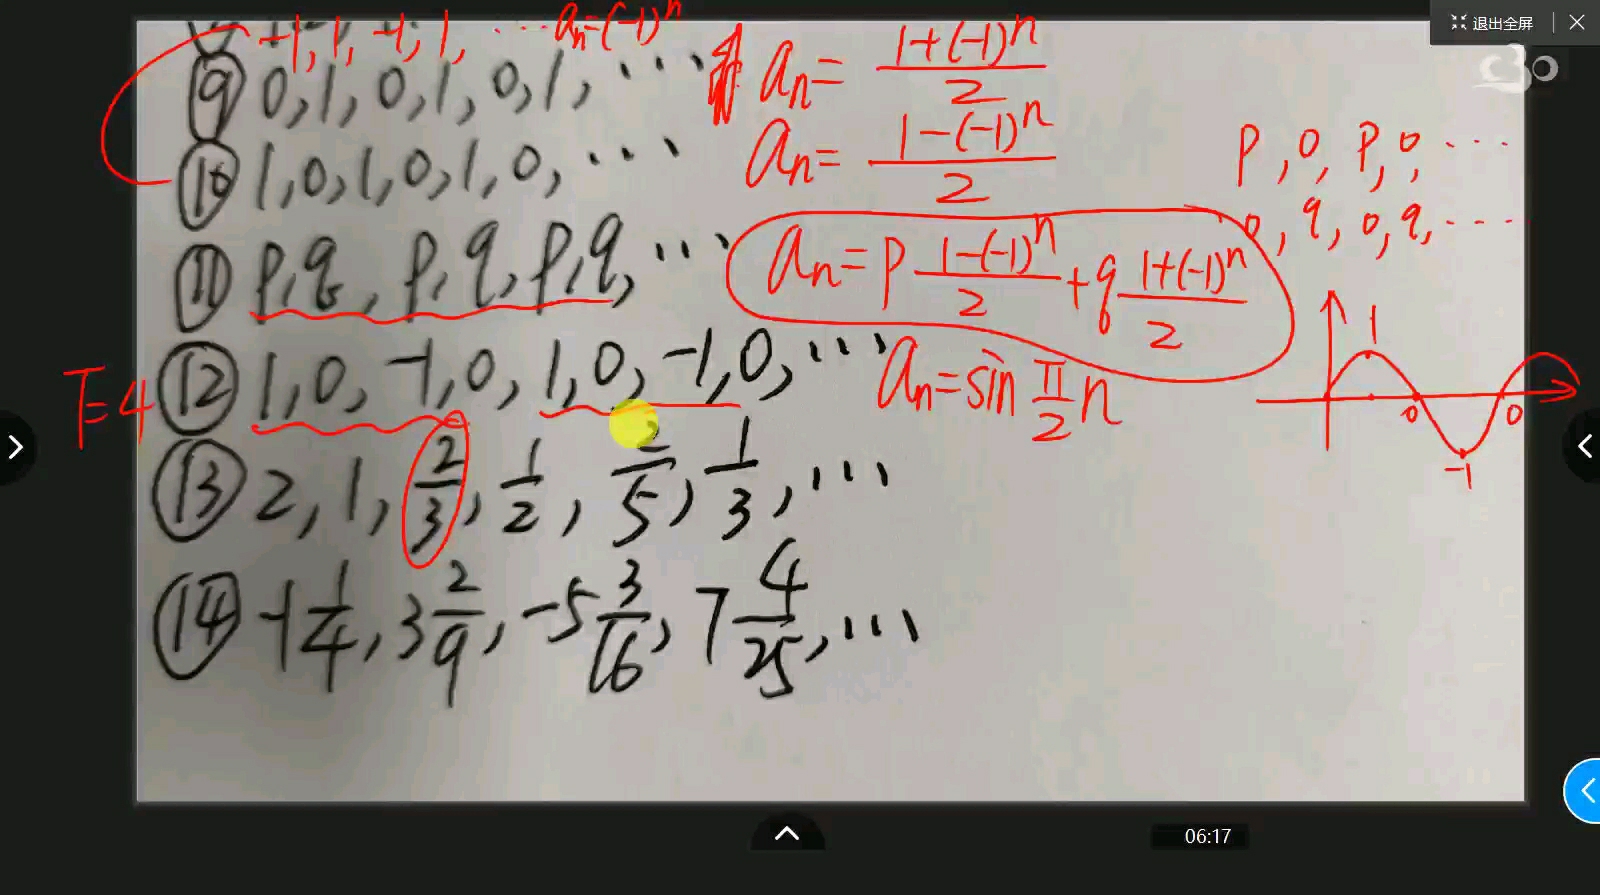 退出全屏
-1, 1, -1, 1, ⋯ aₙ=(-1)ⁿ
⑨ 0, 1, 0, 1, 0, 1, ⋯ aₙ= (1+(-1)ⁿ)/2
⑩ 1, 0, 1, 0, 1, 0, ⋯ aₙ= (1-(-1)ⁿ)/2
p, 0, p, 0, ⋯
0, q, 0, q, ⋯
⑪ p, q, p, q, p, q, ⋯ aₙ= p (1-(-1)ⁿ)/2 + q (1+(-1)ⁿ)/2
T=4 ⑫ 1, 0, -1, 0, 1, 0, -1, 0, ⋯ aₙ= sin π/2 n
1
0 0
-1
⑬ 2, 1, 2/3, 1/2, 2/5, 1/3, ⋯
⑭ -1 1/4, 3 2/9, -5 3/16, 7 4/25, ⋯
06:17